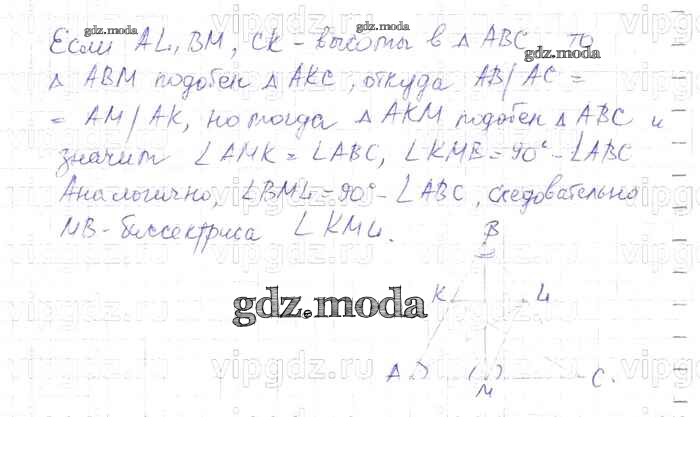 Если AL, BM, CK - высоты в △ ABC то
△ ABM подобен △ AKC, откуда AB/AC =
= AM/AK, но тогда △ AKM подобен △ ABC и
значит ∠AMK = ∠ABC, ∠KMB = 90° - ∠ABC
Аналогично, ∠BML = 90° - ∠ABC, следовательно
MB - биссектриса ∠KML.
B
K
L
A
M
C.
gdz.moda
gdz.moda
gdz.moda
gdz.moda
vipgdz.ru